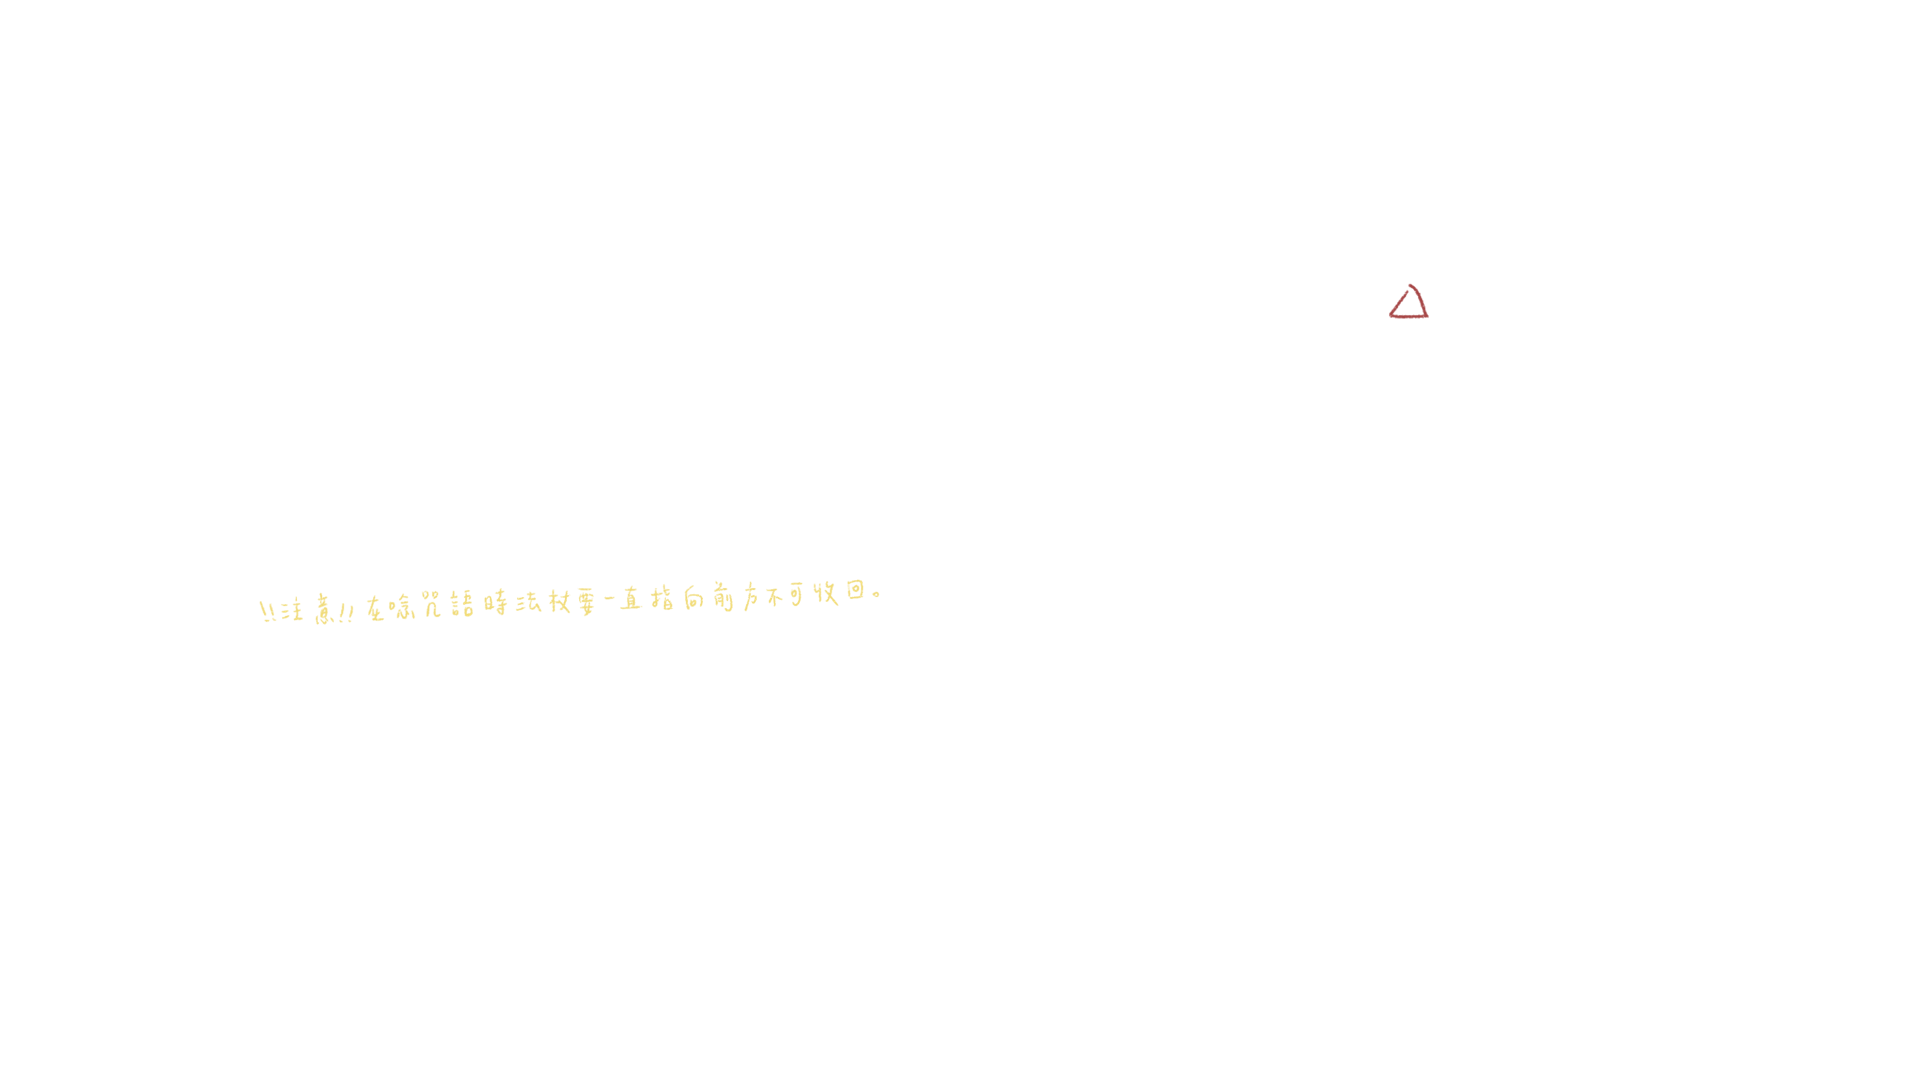 !!注意!!在唸咒語時法杖要一直指向前方不可收回。